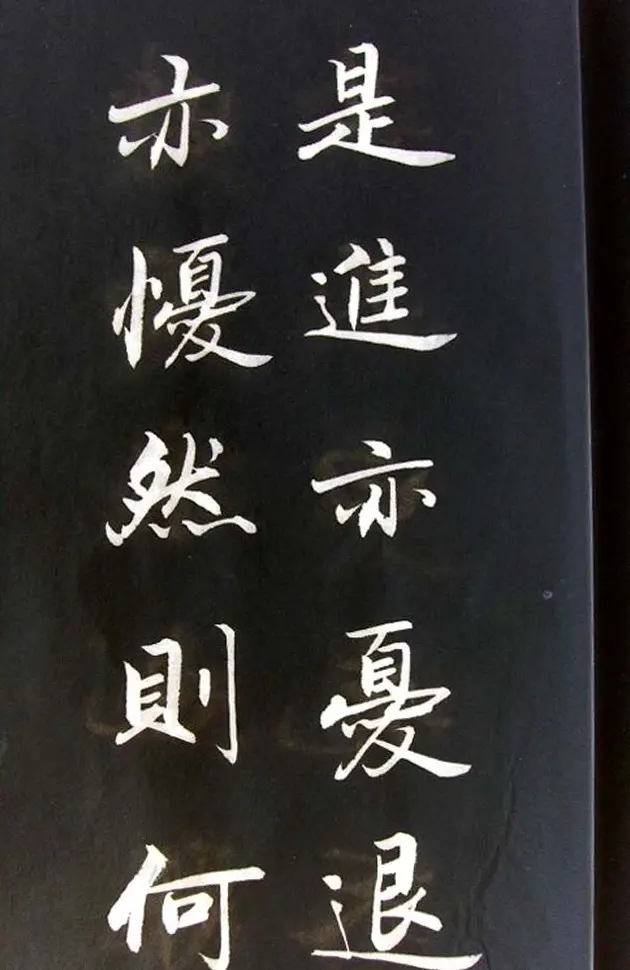 是進亦憂退
亦懮然則何